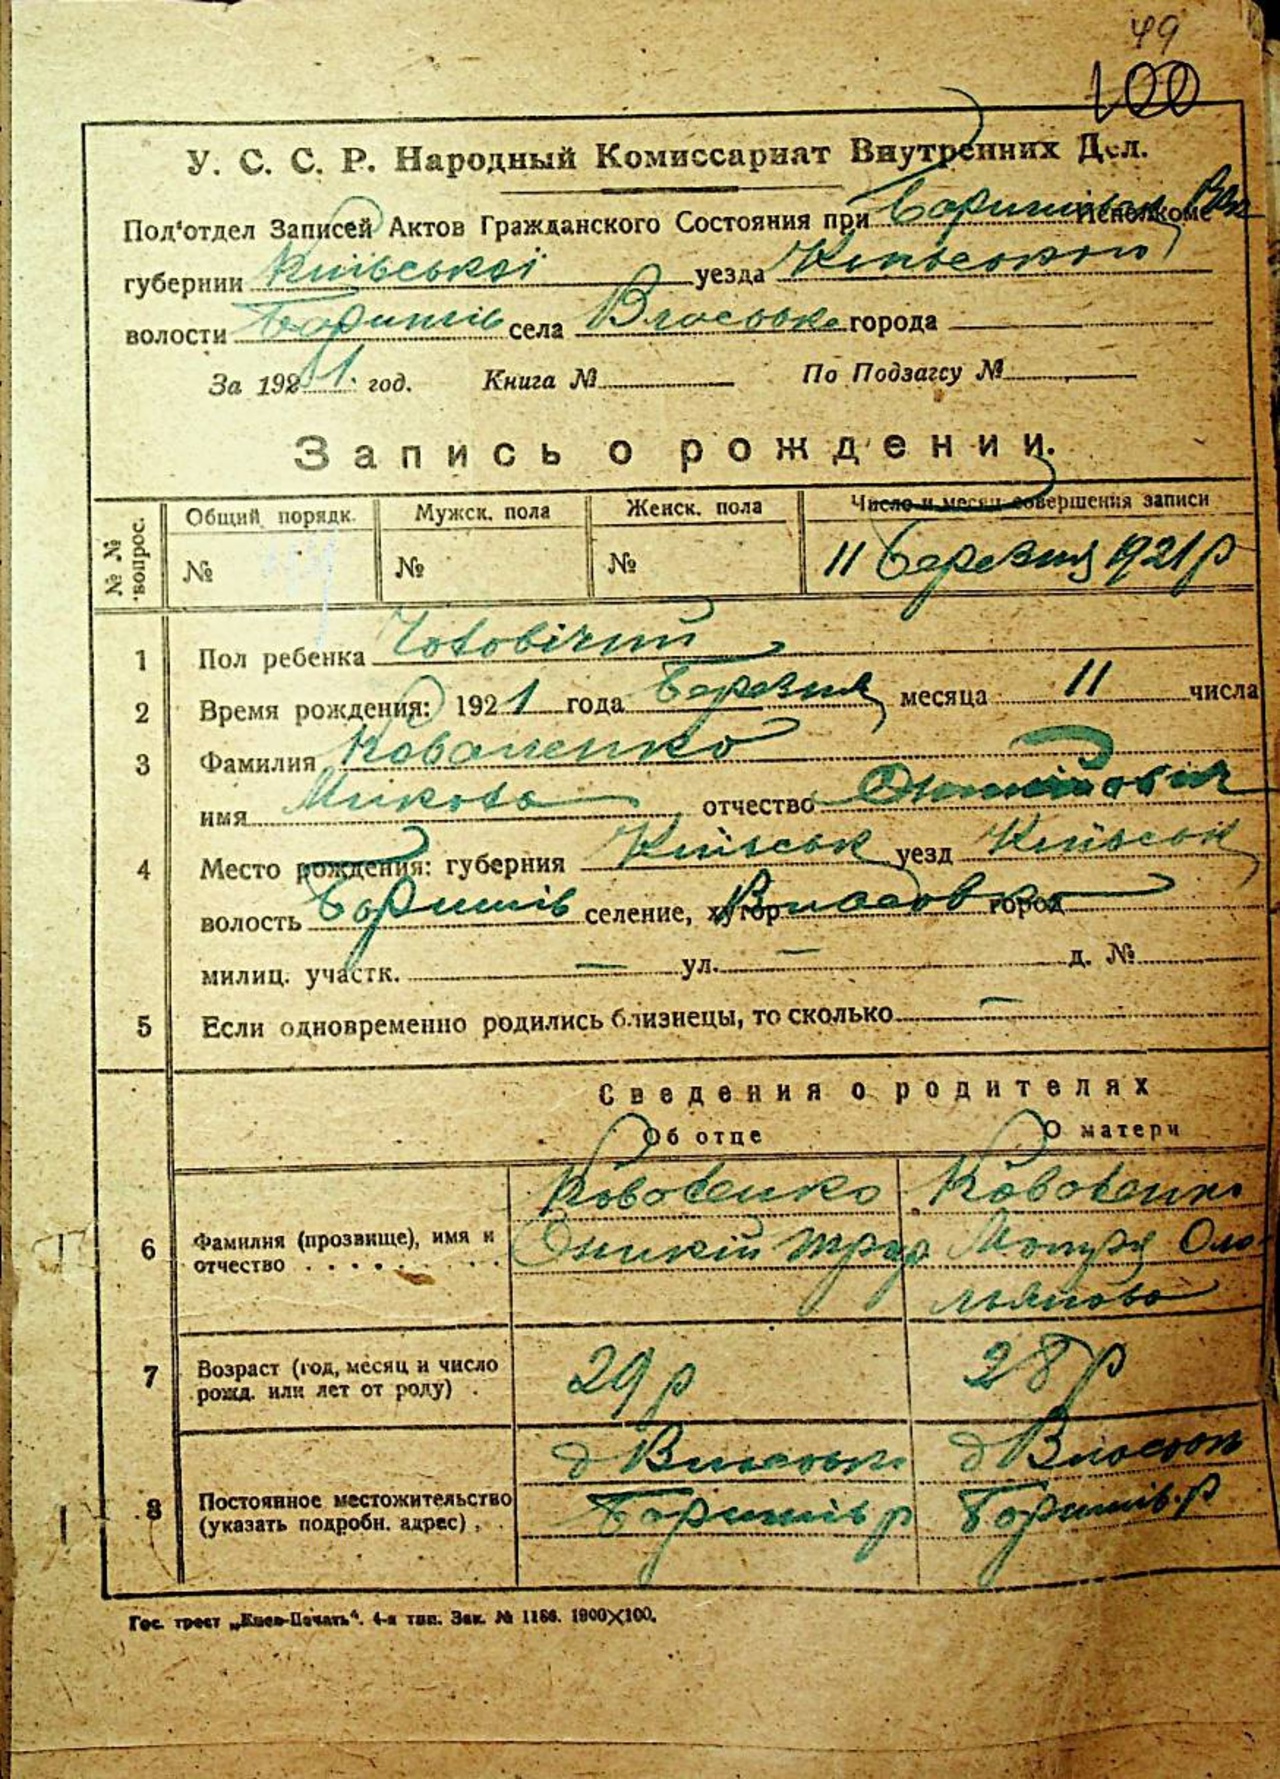 49
100
У. С. С. Р. Народный Комиссариат Внутренних Дел.
Под'отдел Записей Актов Гражданского Состояния при Исполкоме
губернии Київської уезда Київського
волости Баришів села города
За 1921. год. Книга № По Подзагсу №
Запись о рождении.
№ № вопрос. Общий порядк. Мужск. пола Женск. пола Число и месяц совершения записи
№ № № 11 березня 1921 р
1 Пол ребенка Чоловічий
2 Время рождения: 1921 года березня месяца 11 числа
3 Фамилия Коваленко
имя Микола отчество
4 Место рождения: губерния Київськ уезд Київськ
волость Баришів селение, хутор Власовка город
милиц. участк. — ул. — д. №
5 Если одновременно родились близнецы, то сколько —
Сведения о родителях
Об отце О матери
6 Фамилия (прозвище), имя и отчество Коваленко Коваленко
Оникій Мотря
7 Возраст (год, месяц и число рожд. или лет от роду) 29 р 28 р
8 Постоянное местожительство (указать подробн. адрес)
Баришів р Баришів. р
Гос. трест „Киев-Печать“. 4-я тип. Зак. № 1166. 1900×100.